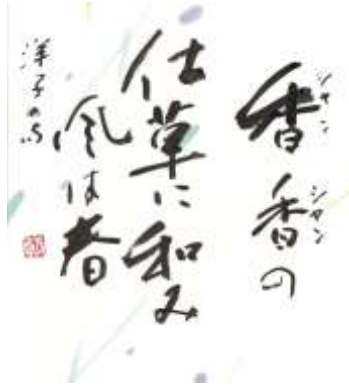 香香の
シャンシャン
仕草に和み
風は春
洋子